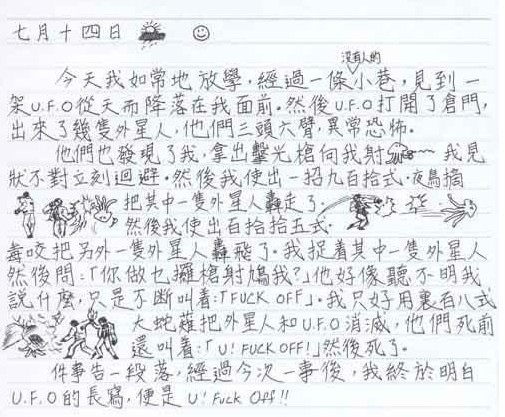 七月十四日
沒有人的
今天我如常地放學，經過一條小巷，見到一
架U.F.O從天而降落在我面前。然後U.F.O打開了倉門，
出來了幾隻外星人，他們三頭六臂，異常恐怖。
他們也發現了我，拿出擊光槍向我射 我見
狀不對立刻迴避。然後我使出一招九百拾式·夜鳥摘
把其中一隻外星人轟走了。
然後我使出百拾拾五式·
毒咬把另外一隻外星人轟飛了。我捉着其中一隻外星人
然後問：「你做乜攞槍射鳩我？」他好像聽不明我
說什麼，只是不斷叫着：「FUCK OFF」。我只好用裏百八式
大地薙把外星人和U.F.O消滅，他們死前
還叫着：「U! FUCK OFF!」然後死了。
件事告一段落，經過今次一事後，我終於明白
U.F.O的長寫，便是 U! Fuck Off!!